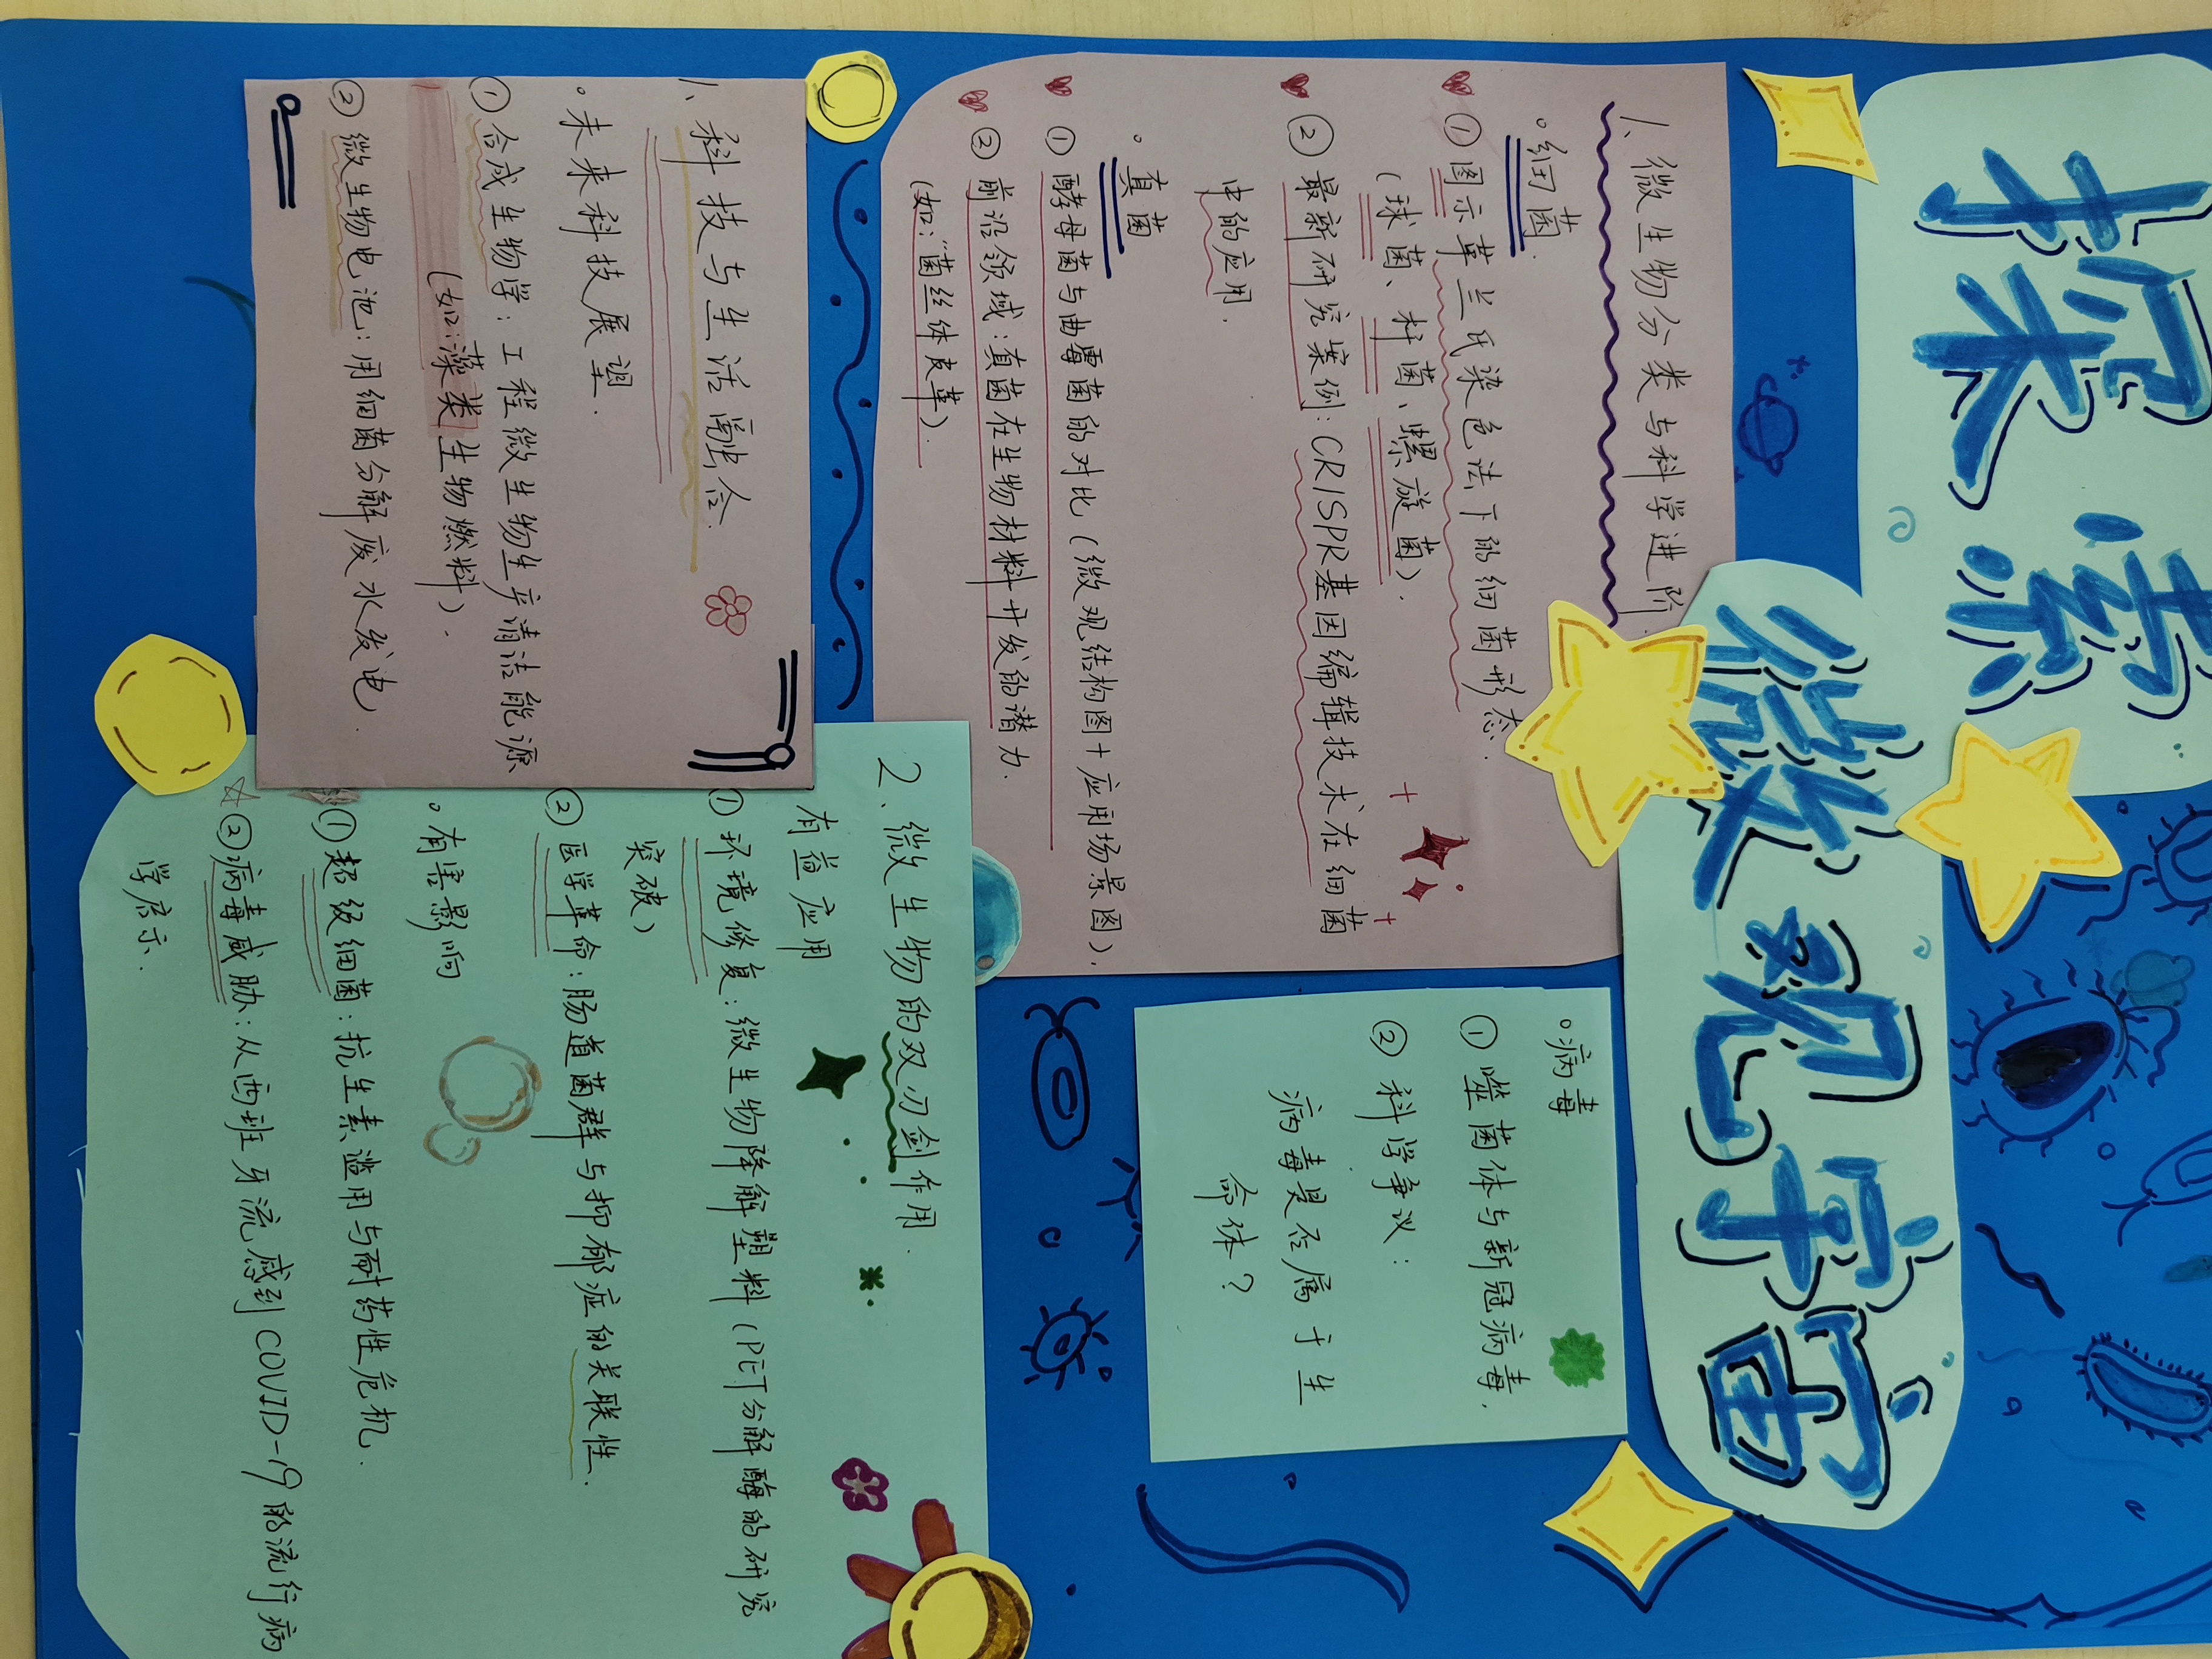 探索
微观宇宙
1、微生物分类与科学进阶.
。细菌
①图示革兰氏染色法下的细菌形态.
(球菌、杆菌、螺旋菌).
②最新研究案例:CRISPR基因编辑技术在细菌
中的应用.
。真菌
①酵母菌与曲霉菌的对比(微观结构图+应用场景图).
②前沿领域:真菌在生物材料开发的潜力.
(如:"菌丝体皮革).
。病毒
①噬菌体与新冠病毒,
②科学争议:
病毒是否属于生
命体?
1、科技与生活融合.
。未来科技展望.
①合成生物学:工程微生物生产清洁能源
(如:藻类生物燃料).
②微生物电池:用细菌分解废水发电.
2、微生物的双刃剑作用.
有益应用
①环境修复:微生物降解塑料(PET分解酶的研究
突破)
②医学革命:肠道菌群与抑郁症的关联性.
。有害影响
①超级细菌:抗生素滥用与耐药性危机.
②病毒威胁:从西班牙流感到COVID-19的流行病
学启示.